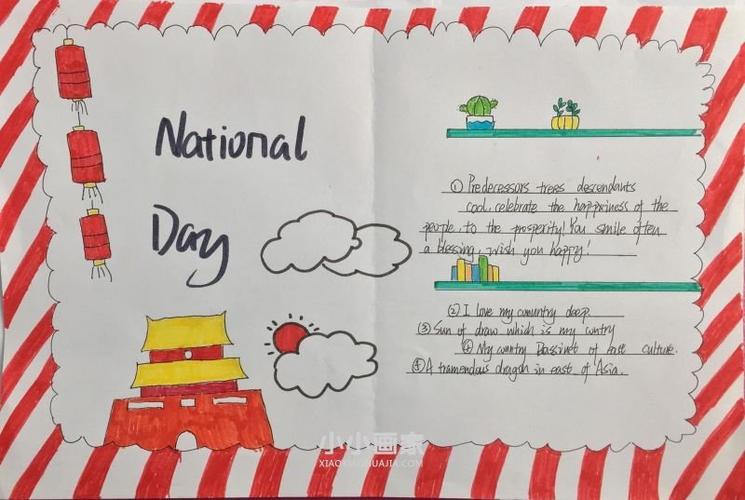 National
Day
① Predecessors trees descendants
cool, celebrate the happiness of the
people, to the prosperity! You smile often
a blessing, wish you happy!
② I love my comuntry deep
③ Sun of draw which is my cuntry
④ My cuntry Passinet of east culture.
⑤ A tramendous dragon in east of Asia.
小小画家
XIAOXIAOHUAJIA.COM